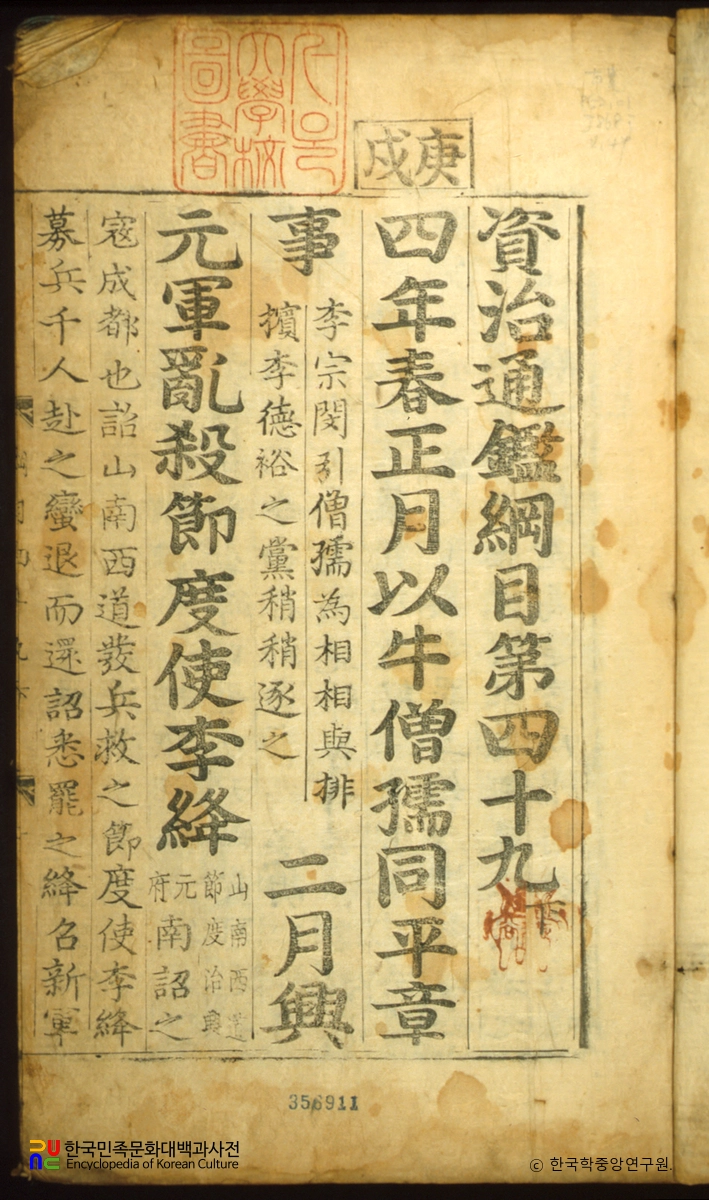 서울
大學校
圖書
庚戌
資治通鑑綱目第四十九
四年春正月以牛僧孺同平章
事
李宗閔引僧孺為相相與排
擯李德裕之黨稍稍逐之
二月興
元軍亂殺節度使李絳
山南西道
節度治興
元
府
南詔之
寇成都也詔山南西道發兵救之節度使李絳
募兵千人赴之蠻退而還詔悉罷之絳召新軍
356911
한국민족문화대백과사전
Encyclopedia of Korean Culture
ⓒ 한국학중앙연구원.